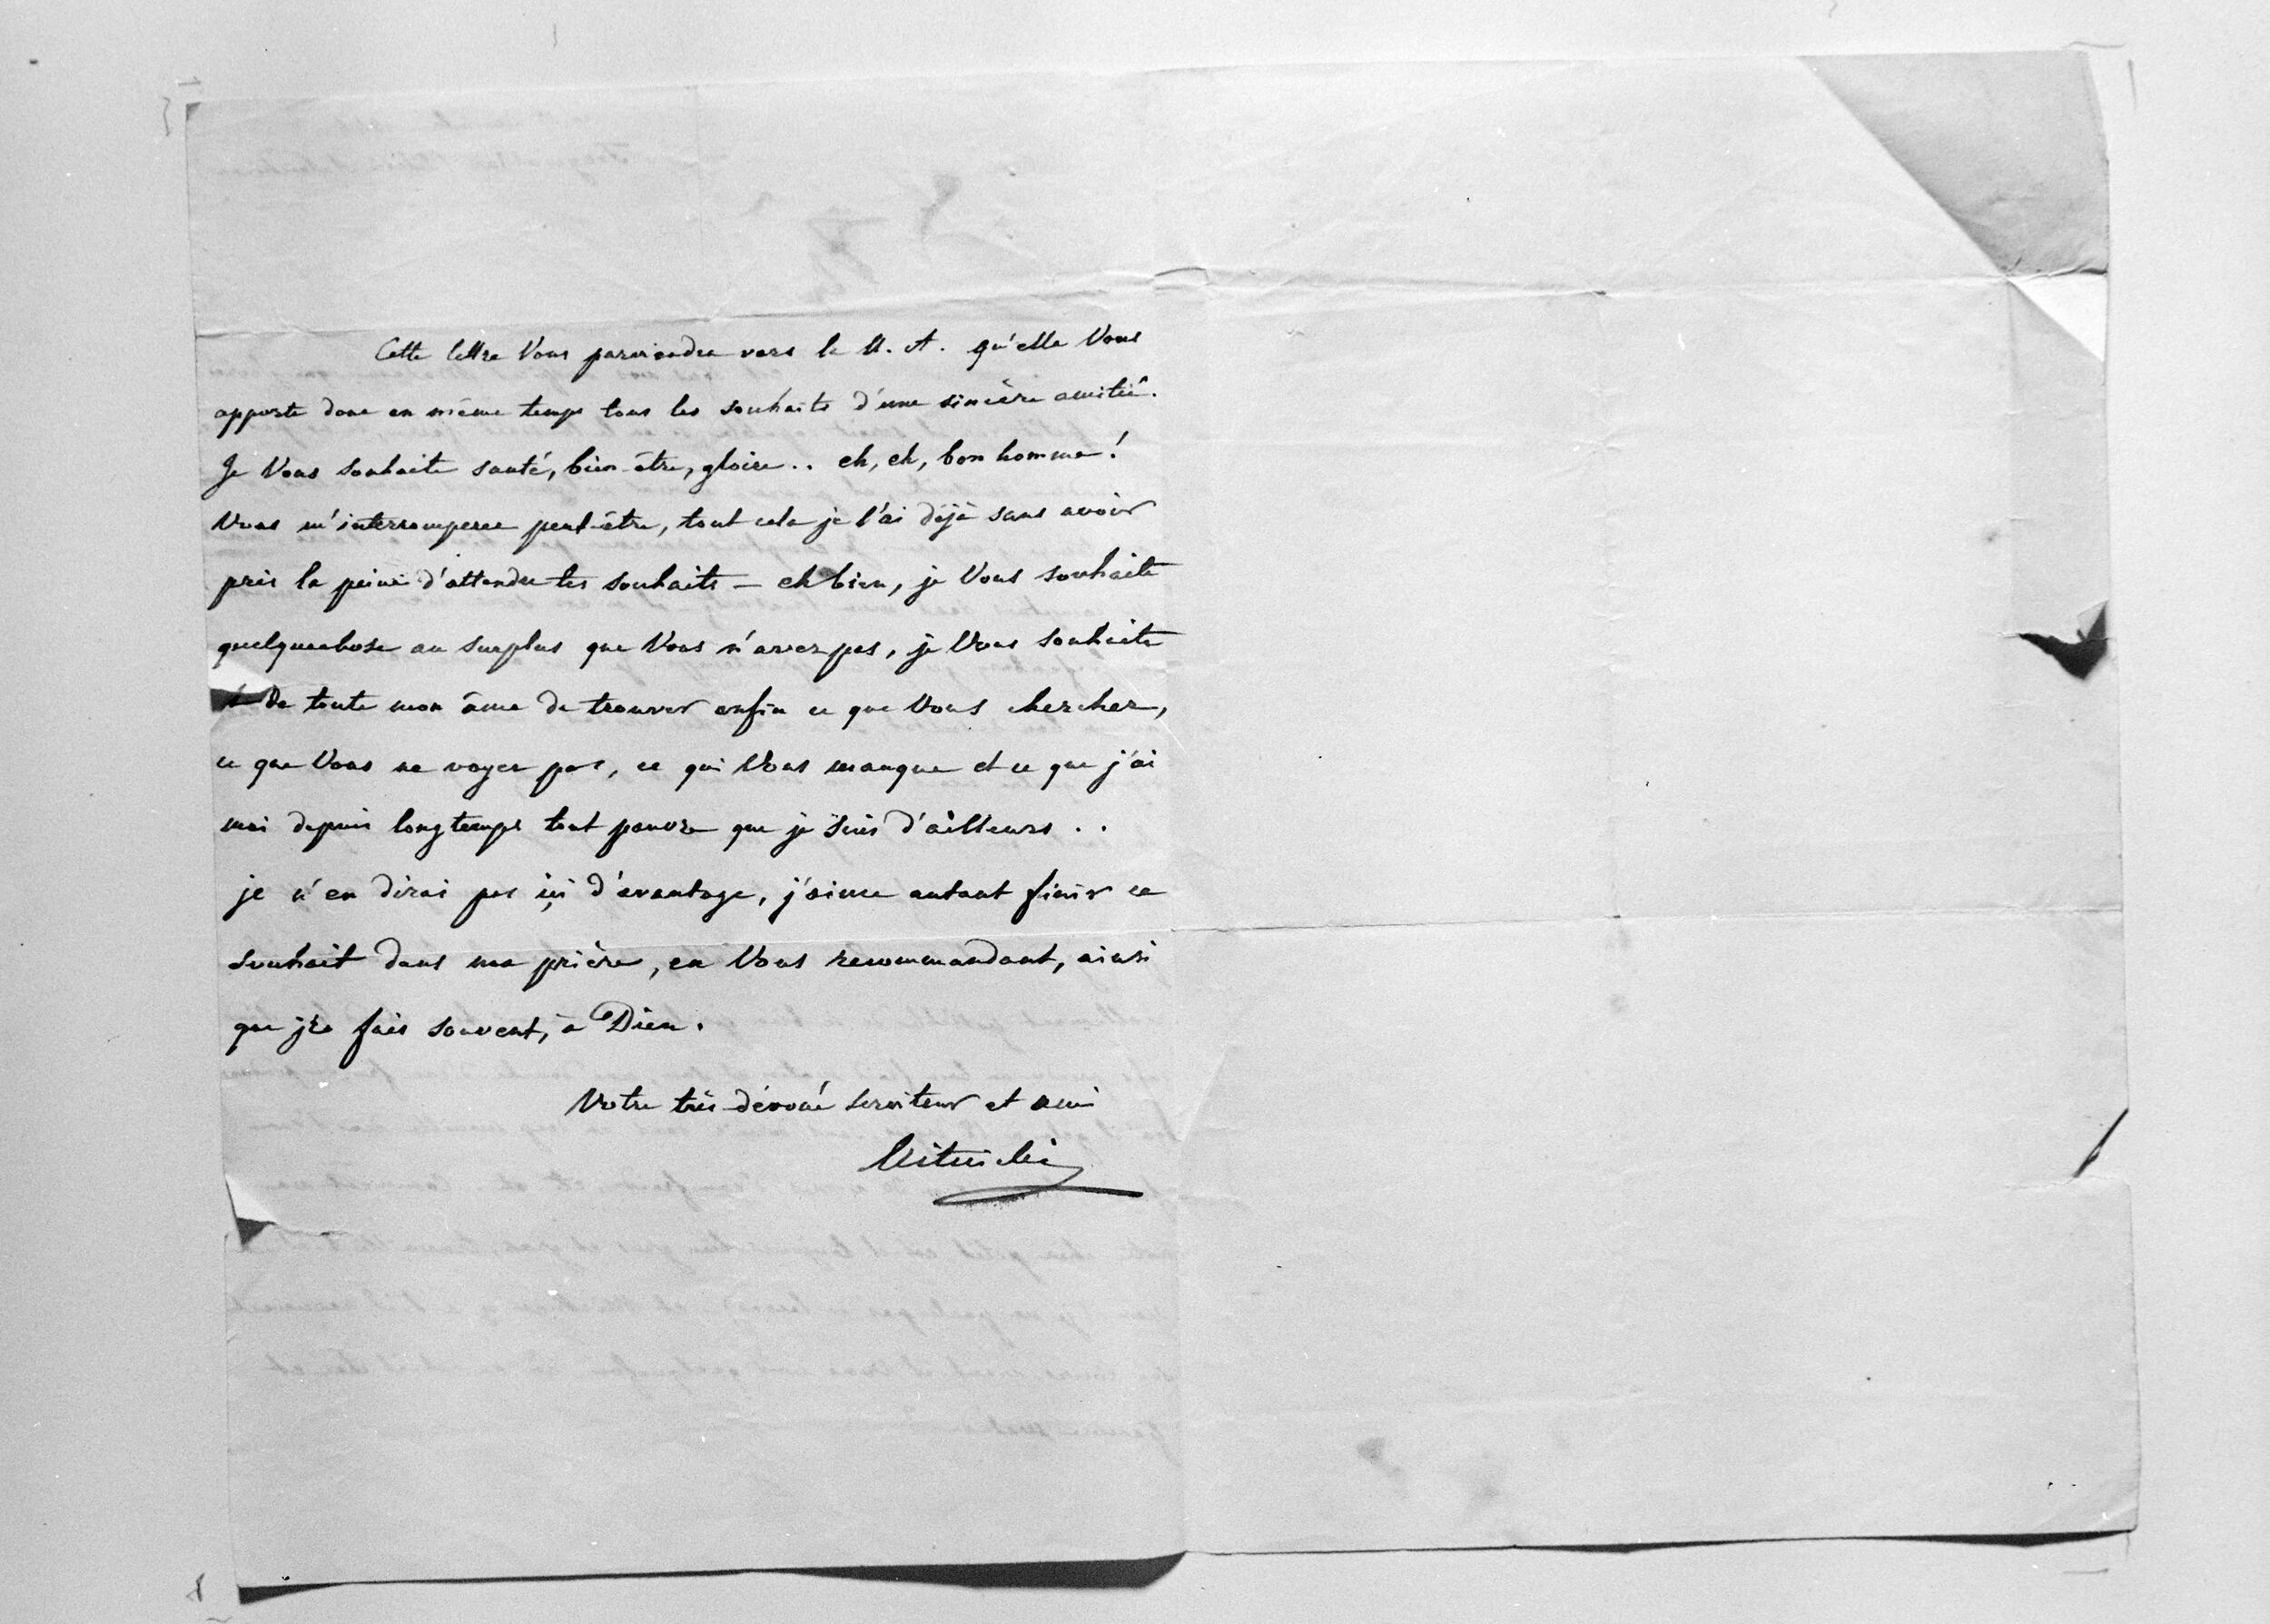 Cette lettre Vous parviendra vers le N. A. qu'elle Vous
apporte donc en même temps tous les souhaits d'une sincère amitié.
Je Vous souhaite santé, bien-être, gloire.. eh, eh, bon homme!
Vous m'interromperez peut-être, tout cela je l'ai déjà sans avoir
pris la peine d'attendre tes souhaits — eh bien, je Vous souhaite
quelquechose au surplus que Vous n'avez pas, je Vous souhaite
de toute mon âme de trouver enfin ce que Vous cherchez,
ce que Vous ne voyez pas, ce qui Vous manque et ce que j'ai
moi depuis longtemps tout pauvre que je suis d'ailleurs . .
je n'en dirai pas içi d'avantage, j'aime autant finir ce
souhait dans ma prière, en Vous recommandant, ainsi
que je fais souvent, à Dieu.
Votre très-dévoué serviteur et ami